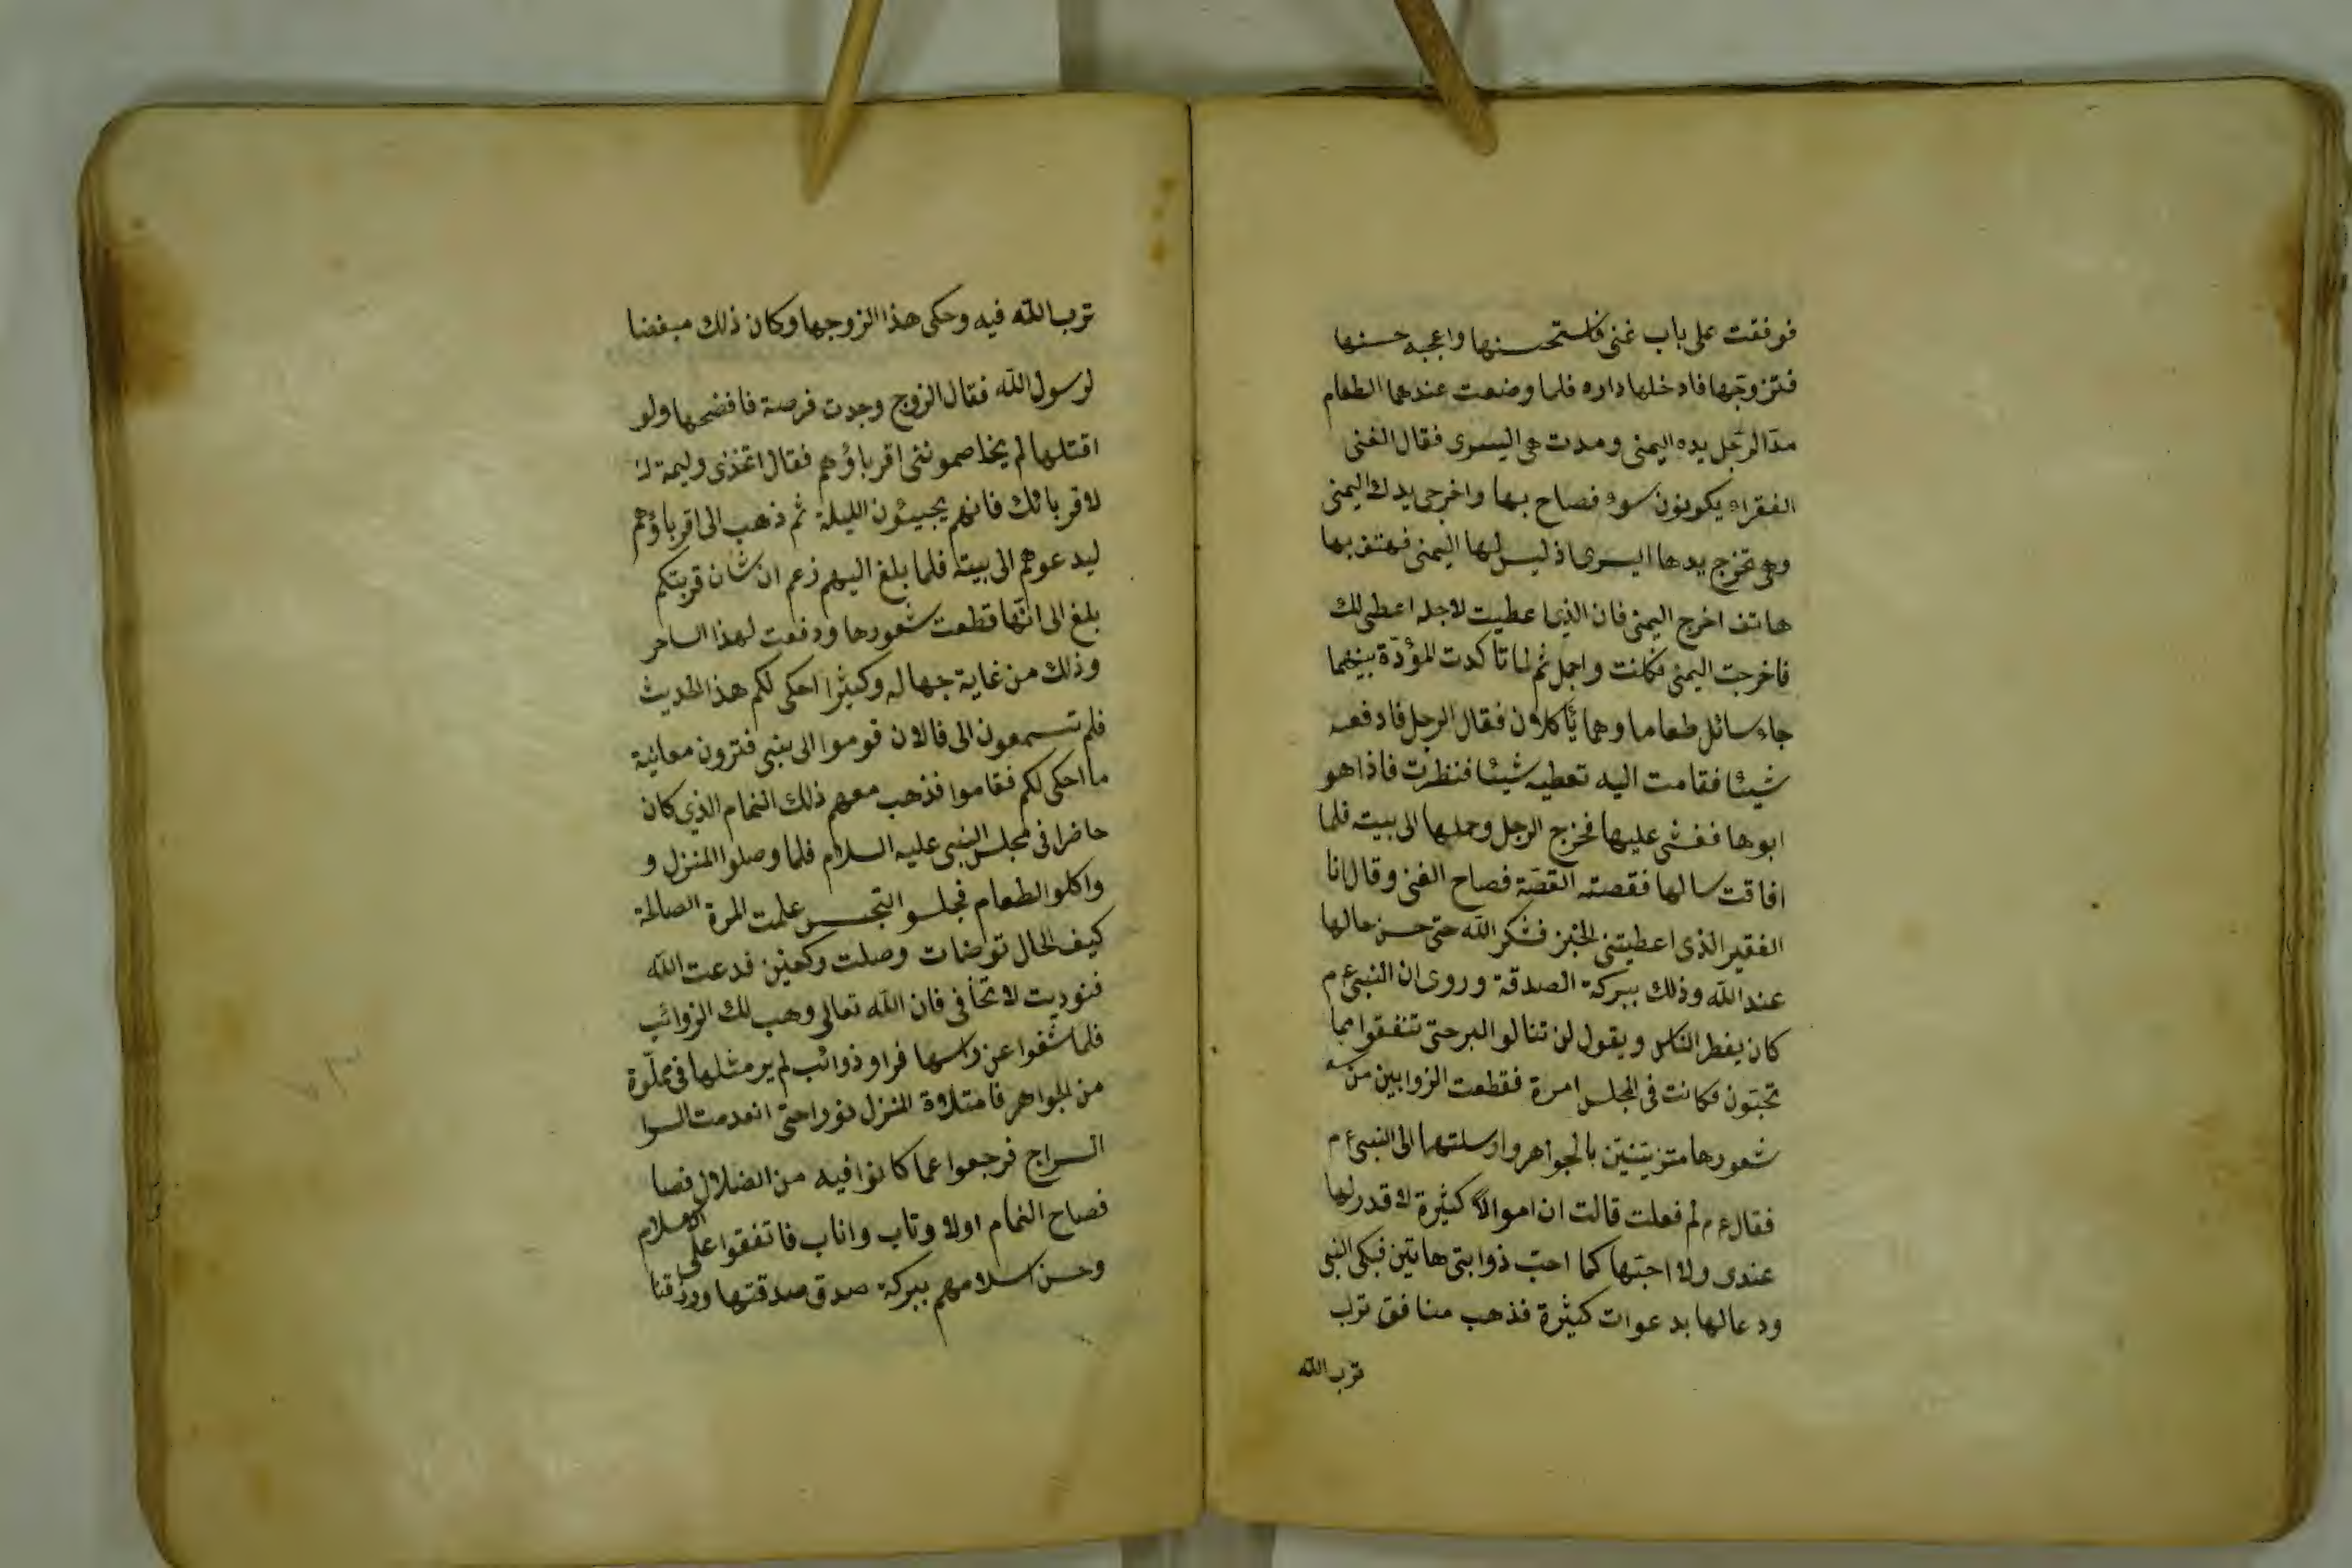 فوفقت على باب غنى فاستحسنها واعجبه حسنها
فتزوّجها فادخلها داره فلما وضعت عندهما الطعام
مدّ الرجل يده اليمنى ومدت هى اليسرى فقال الغنى
الفقراء يكونون سوء فصاح بها واخرجى يدك اليمنى
وهى تخرج يدها اليسرى اذ ليس لها اليمنى فهتف بها
هاتف اخرج اليمنى فان الذى اعطيت لاجله اعطى لك
فاخرجت اليمنى فكانت واجمل ثم لما تأكدت المؤدّة بينهما
جاء سائل طعاما وهما يأكلان فقال الرجل فادفعه
شيئا فقامت اليه تعطيه شيئا فنظرت فاذا هو
ابوها فغشى عليها فخرج الرجل وحملها الى بيته فلما
افاقت سالها فقصته القصّة فصاح الغنى وقال انا
الفقير الذى اعطيتنى الخبز فشكر الله حتى حسن حالها
عند الله وذلك ببركة الصدقة وروى ان النبى ع م
كان يفطر الناس ويقول لن تنالوا البر حتى تنفقوا مما
تحبّون فكانت فى المجلس امرة فقطعت الزوابين من
شعورها متزينتين بالجواهر وارسلتهما الى النبى ع م
فقال ع م لم فعلت قالت ان اموالا كثيرة لا قدر لها
عندى ولا احبّها كما احبّ ذوابتى هاتين فبكى النبى
ودعا لها بدعوات كثيرة فذهب منافق ترب
ترب الله
ترب الله فيه وحكى هذا الزوجها وكان ذلك مبغضا
لرسول الله فقال الزوج وجدت فرصة فافضحها ولو
اقتلها لم يخاصموننى اقرباؤهم فقال اتخذى وليمة
لاقربائك فانهم يجيئون الليلة ثم ذهب الى اقرباؤهم
ليدعوهم الى بيته فلما بلغ اليهم زعم ان شان قربتكم
بلغ الى انّها قطعت شعورها ودفعت لهذا الساحر
وذلك من غاية جهاله وكثيرا احكى لكم هذا الحديث
فلم تسمعون الى فالان قوموا الى بيتى فترون معاينة
ما احكى لكم فقاموا فذهب معهم ذلك النمام الذى كان
حاضرا فى مجلس النبى عليه السلام فلما وصلوا المنزل و
واكلو الطعام فجلسوا التجسس علمت المرة الصالحة
كيف الحال توضات وصلت ركعتين فدعت الله
فنوديت لا تخافى فان الله تعالى وهب لك الزوائب
فلما شفوا عن راسها فراو ذوائب لم ير مثلها فى مملوّة
من الجواهر فامتلاة المنزل نورا حتى انعدمت السرا
السراج فرجعوا عما كانوا فيه من الضلال فصا
فصاح النمام اولا وتاب واناب فاتفقوا على الاسلام
وحسن اسلامهم ببركة صدق صدقتها ورزقنا